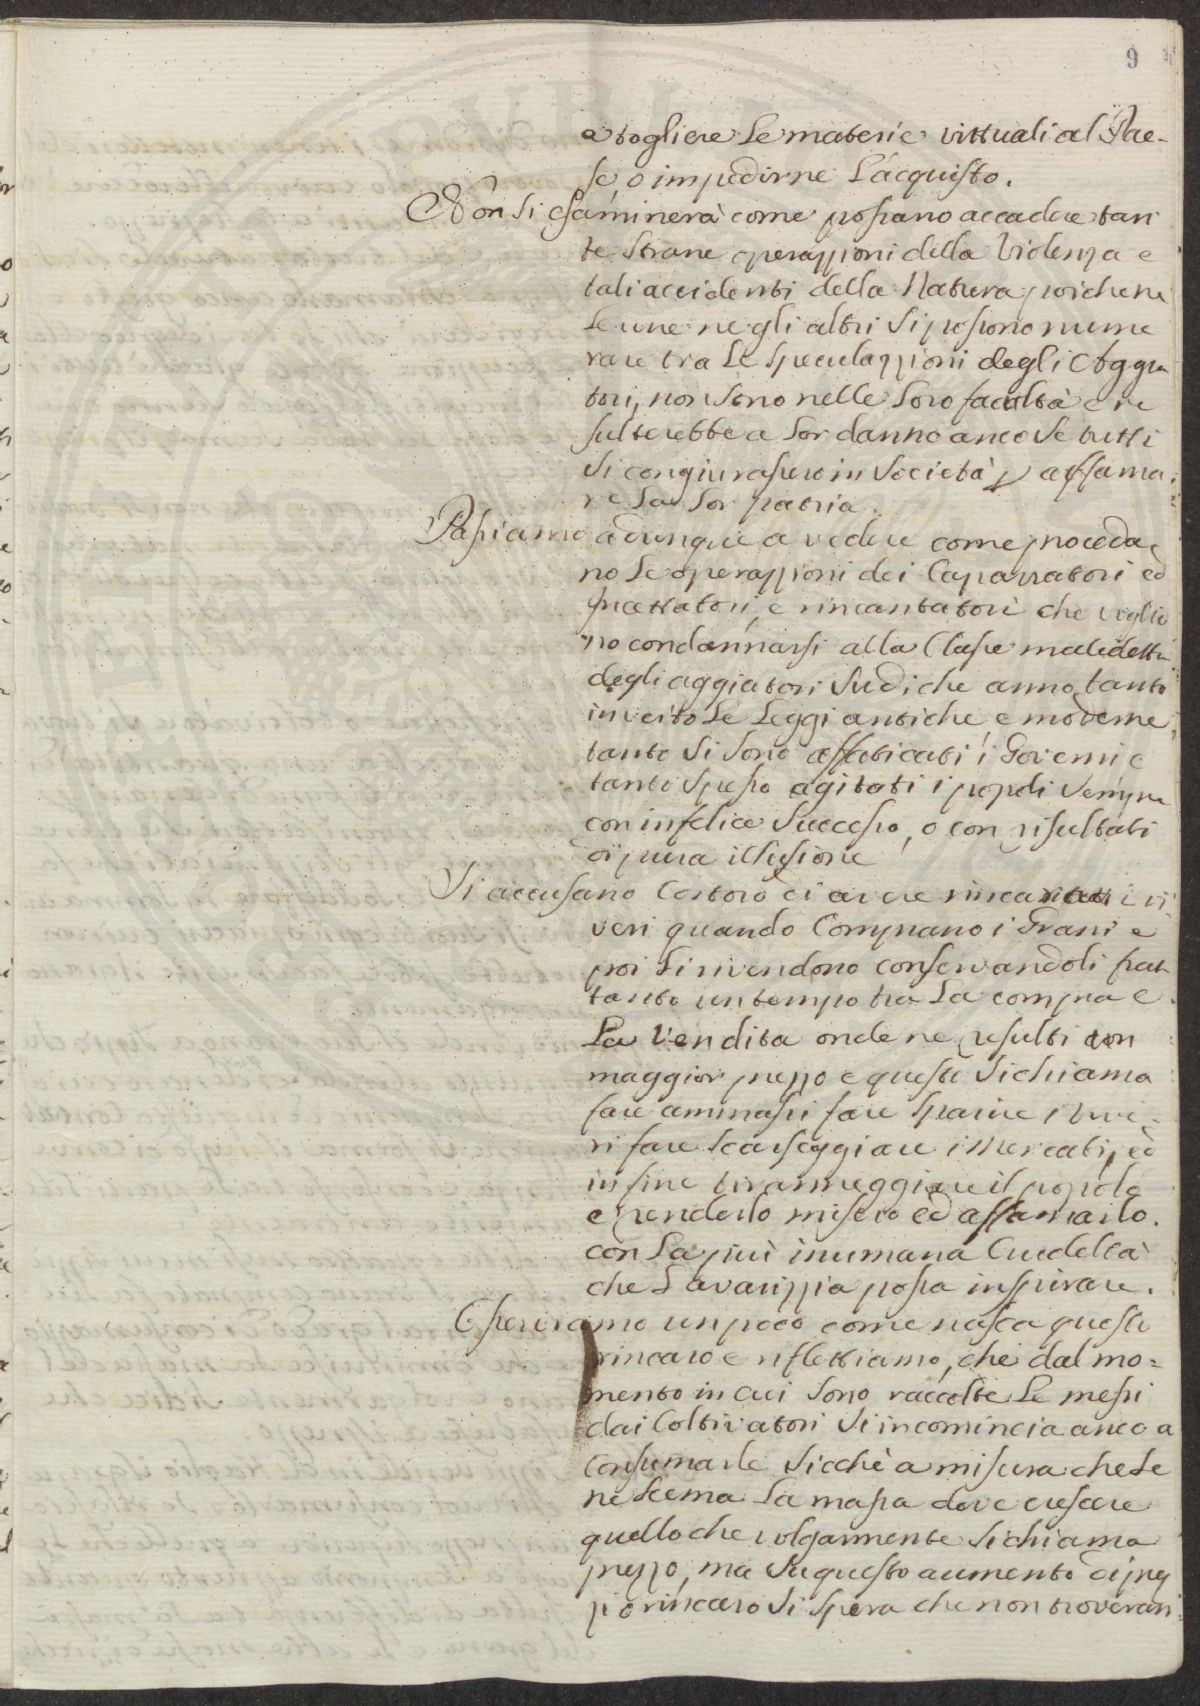 9
a togliere le materie vittuali al Pae-
se, o impedirne l'acquisto.
Non si esaminerà come possano accadere tan
te strane operazzioni della Violenza e
tali accidenti della Natura poiche ne
le une ne gli altri si possono nume
rare tra le speculazzioni degli Aggia
tori, non sono nelle loro facoltà e re
sulterebbe a lor danno anco se tutti
si congiurassero in società p affama
re la lor patria.
Passiamo adunque a vedere come proceda
no le operazzioni dei Caparratori ed
Incettatori, e rincantatori che voglio
no condannarsi alla Classe maledetta
degli aggiatori su di che anno tanto
inveito le leggi antiche e moderne,
tanto si sono affaticati i Governi e
tanto spesso agitati i popoli sempre
con infelice successo, o con risultati
di pura illusione
Si accusano Costoro di avere rincarati i vi
veri quando Comprano i Grani e
poi li rivendono conservandoli frat
tanto un tempo tra la compra e
la Vendita onde ne resulti un
maggior prezzo e questo si chiama
fare ammassi fare sparire i vive-
ri fare scarseggiare i Mercati, ed
in fine tiranneggiare il popolo
e renderlo misero ed affamarlo.
con la più inumana Crudeltà
che l'avarizzia possa inspirare.
Osserviamo un poco come nasca questo
rincaro e riflettiamo, che dal mo=
mento in cui sono raccolte le messi
dai Coltivatori si incomincia anco a
Consumarle sicchè a misura che se
ne scema la massa deve crescere
quello che volgarmente si chiama
prezzo, ma su questo aumento di prez
zo rincaro si spera che non troveran